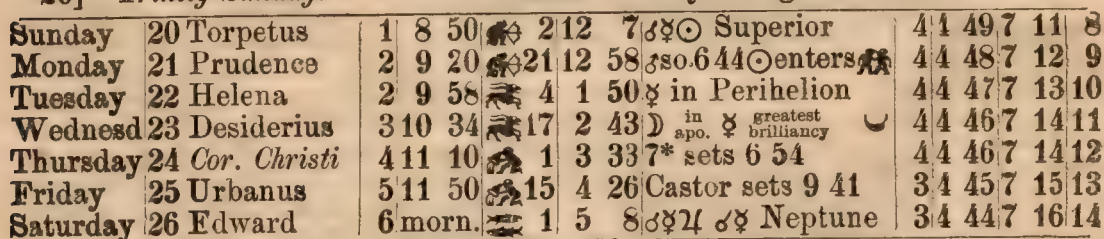 Sunday 20 Torpetus 1 8 50 2 12 7 ☌☿☉ Superior 4 4 49 7 11 8
Monday 21 Prudence 2 9 20 21 12 58 so. 6 44 ☉ enters 4 4 48 7 12 9
Tuesday 22 Helena 2 9 58 4 1 50 ☿ in Perihelion 4 4 47 7 13 10
Wednesd 23 Desiderius 3 10 34 17 2 43 ☽ in apo. ♀ greatest brilliancy 4 4 46 7 14 11
Thursday 24 Cor. Christi 4 11 10 1 3 33 7* sets 6 54 4 4 46 7 14 12
Friday 25 Urbanus 5 11 50 15 4 26 Castor sets 9 41 3 4 45 7 15 13
Saturday 26 Edward 6 morn. 1 5 8 ☌☿♃ ☌☿ Neptune 3 4 44 7 16 14